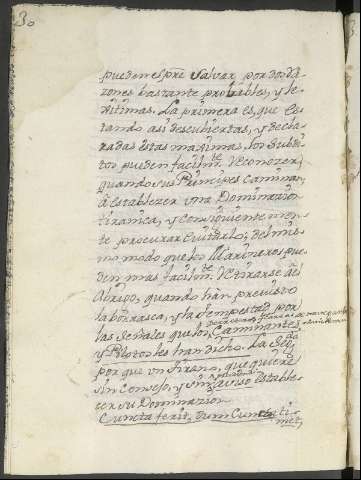 30
pueden sprẽ salvar por dos Ra-
zones bastante probables, y le-
xitimas. La primera es, que es-
tando asi descubiertas, y decla-
radas estas maximas, los subdi-
tos pueden facilmte. Reconozer,
quando sus Principes caminan
à establezer vna Dominazion
tiranica, y consiguiente men-
te procurar euitarlo; del mis-
mo modo que los Marineros pue-
den mas facilmte. Retirarse àl
Abrigo, quando han preuisto
la borrasca, y la tempestad por
las señales que los Caminantes
y Pilotos les han dicho. La 2da.
por que vn tirano, que quiere
sin Consejo, y sin auiso estable-
cer su Dominazion
Cuncta ferit, dum Cuncta ti-
met,